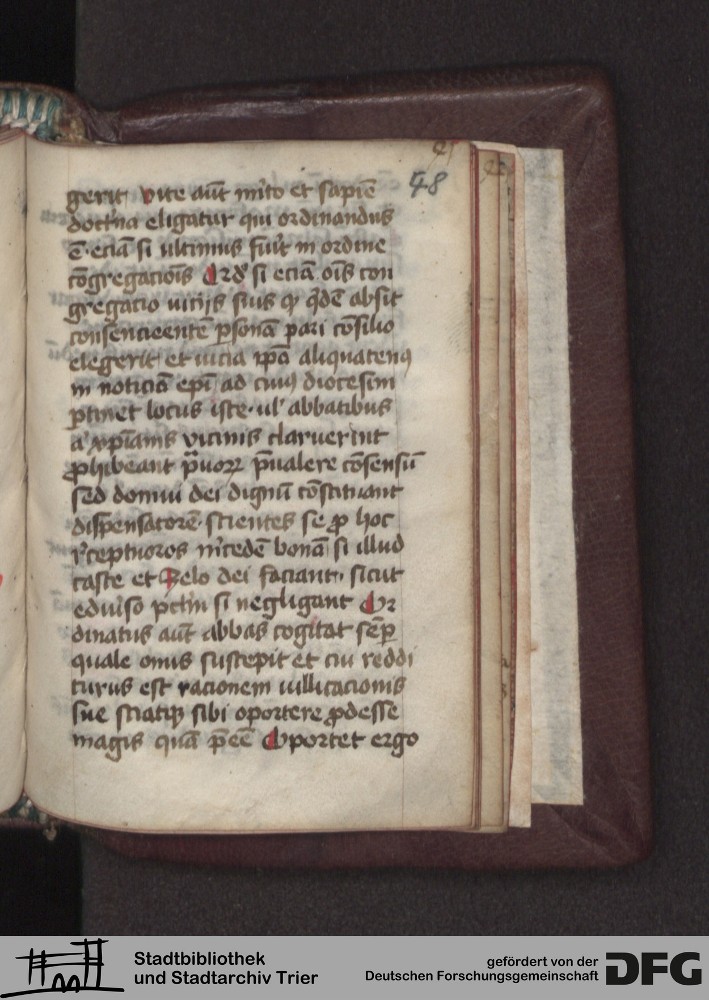 48
gerit vite aūt mĩto et sapiē
doctĩna eligatur qui ordinandus
ē· eciā si ultimus fuĩt in ordine
cōgregacioīs Qr̄d' si eciā oīs con
gregacio vicijs suis qꝫ q̄dē absit
consencieentē ꝑsonā pari cōsilio
elegerit et vicia ip̄a aliquatenꝰ
in noticiā ep̄i ad cuiꝰ diocesim
ꝑtinet locus iste· ul' abbatibus
a' xp̄ianis vicinis claruerint
ꝓhibeant p̄uoꝝ p̄ualere cōsensū
sed domui dei dignū cōstituant
dispensatorē· scientes se ꝓ hoc
r̄cepturos m̄cedē bonā si illud
caste et zelo dei faciant· sicut
eduĩso pctm̄ si negligant Or
dinatus aūt abbas cogitat sēꝑ
quale onus suscepit et cui reddi
turus est racionem uillicacionis
sue sciatqꝫ sibi oportere ꝓdesse
magis quā p̄eē Oportet ergo
Stadtbibliothek
und Stadtarchiv Trier
gefördert von der
Deutschen Forschungsgemeinschaft
DFG